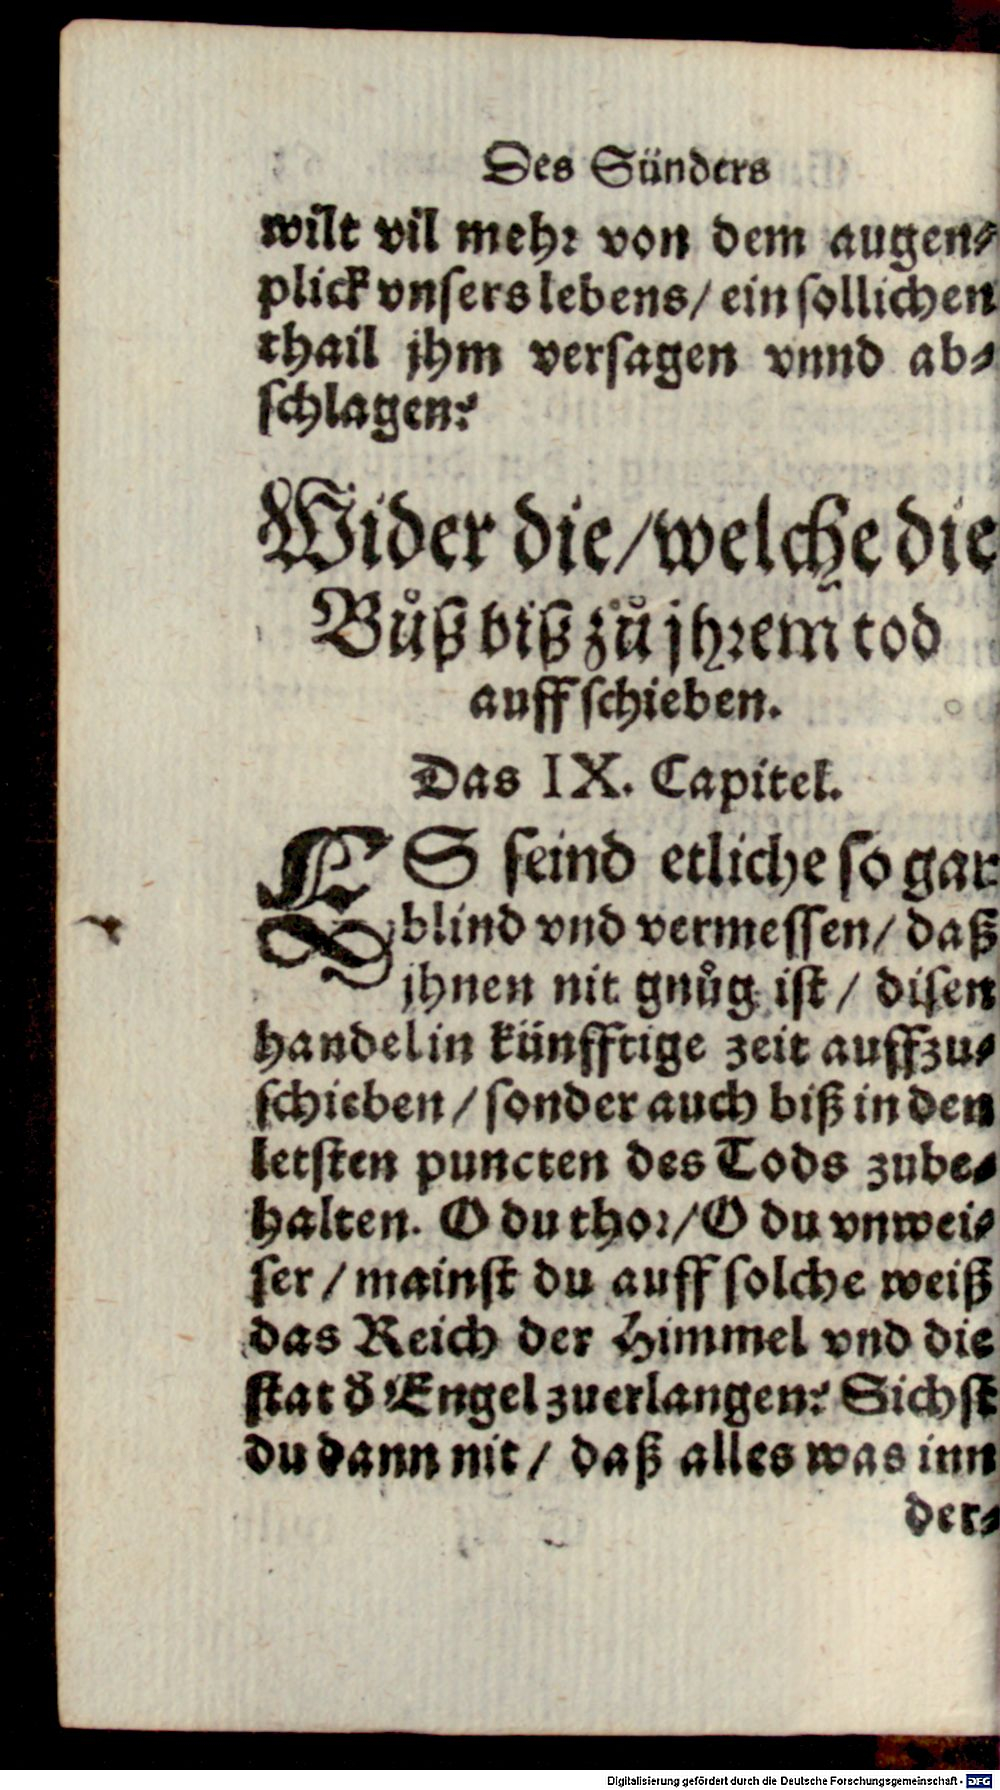 Des Sünders
wilt vil mehr von dem augen-
plick vnsers lebens/ ein sollichen
thail jhm versagen vnnd ab-
schlagen?
Wider die/ welche die
Bůß biß zů jhrem tod
auff schieben.
Das IX. Capitel.
ES seind etliche so gar
blind vnd vermessen/ daß
jhnen nit gnůg ist / disen
handel in künfftige zeit auffzu-
schieben / sonder auch biß in den
letsten puncten des Tods zube-
halten. O du thor/ O du vnwei-
ser / mainst du auff solche weiß
das Reich der Himmel vnd die
stat d̕ Engel zuerlangen? Sichst
du dann nit / daß alles was inn
der-
Digitalisierung gefördert durch die Deutsche Forschungsgemeinschaft - DFG